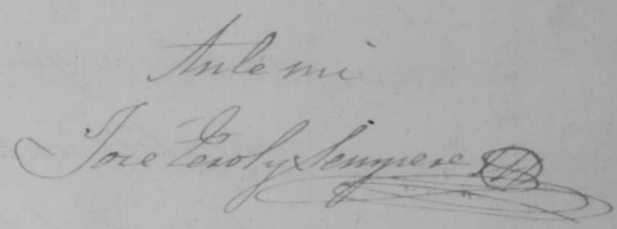 Ante mi
Jose Terol y Sempere